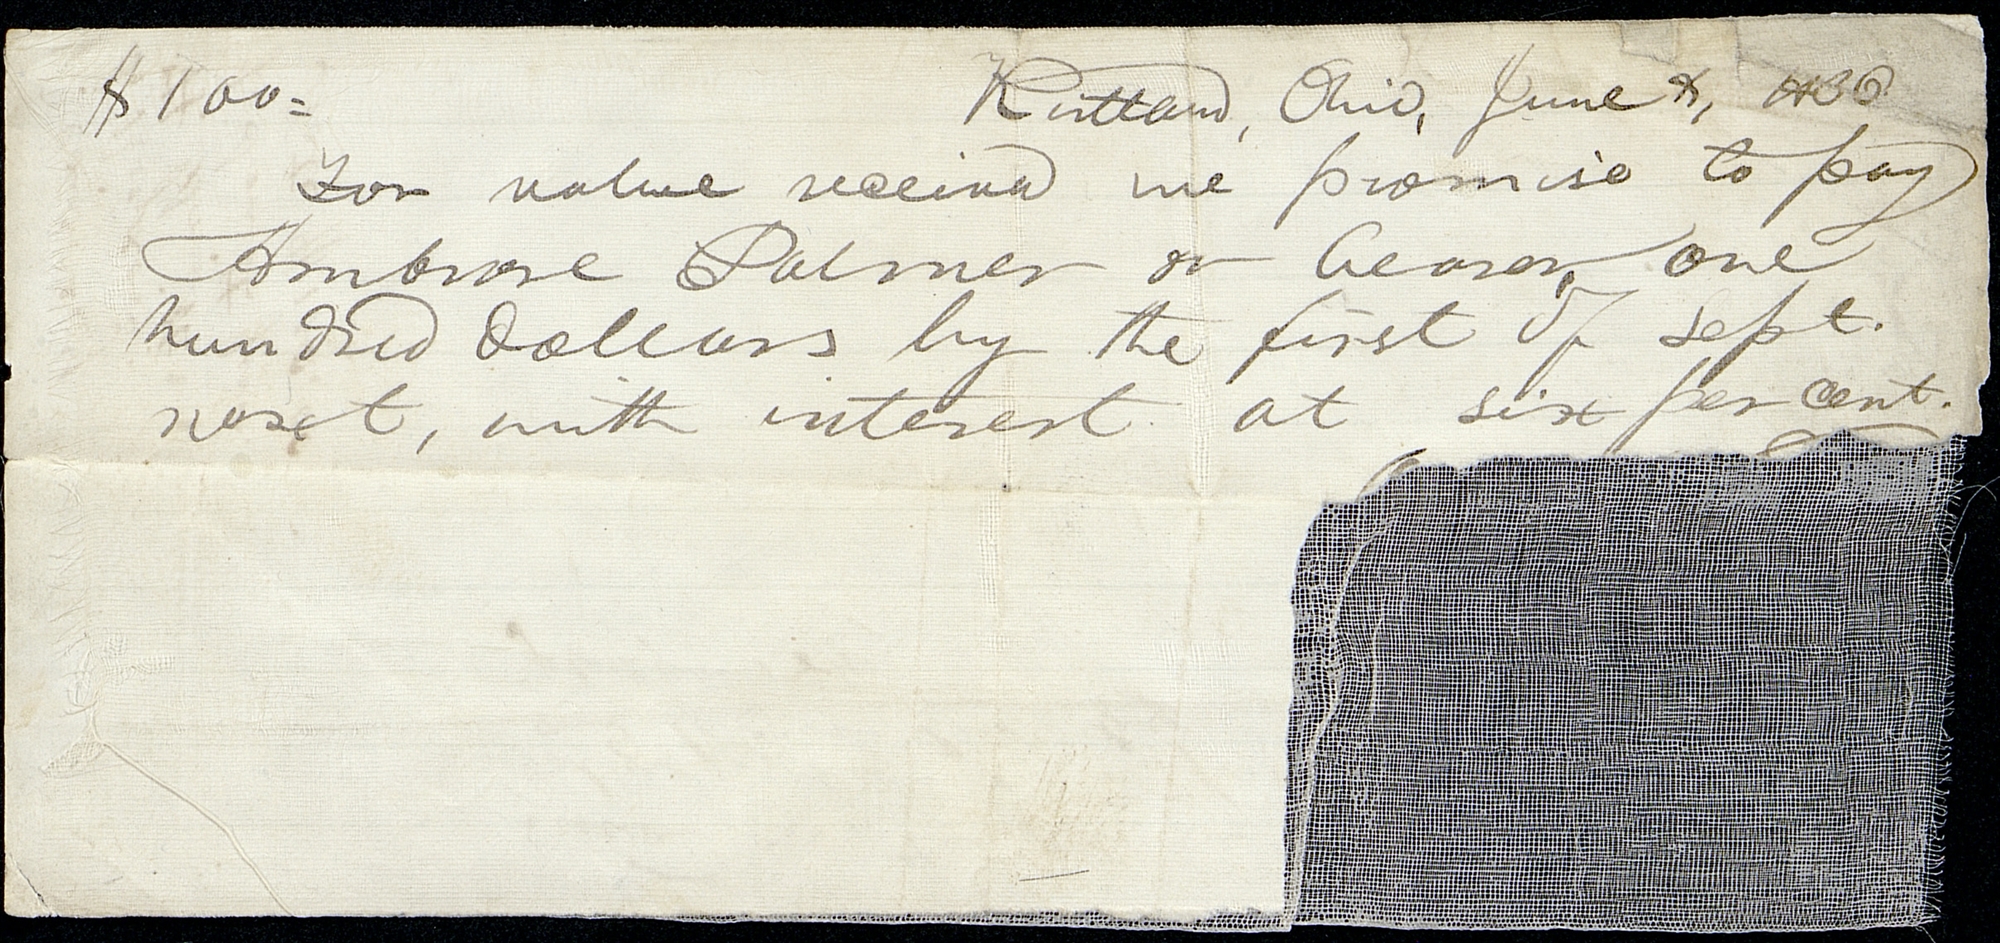 $100=
Kirtland, Ohio, June 8, 1836
For value received we promise to pay
Ambrose Palmer or bearer, one
hundred dollars by the first of Sept.
next, with interest at six per cent.